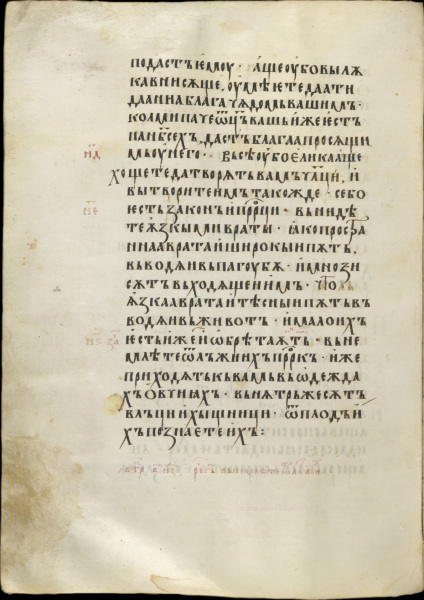 подастъ ѥмоу · аще оубо вы лѫ
кавни сѫще, оумѣѥте даати
даанна блага чѧдомь вашимь ·
колми паче ѿц҃ъ вашь иже ѥстъ
на нб҃сехъ, дастъ благаа просѧщи
н҃д мь оу него · Въсѣ оубо ѥлика аще
хощете да творѧтъ вамъ чл҃ци, и
вы творите имъ такожде · се бо
н҃е ѥстъ законъ и пр҃рци · вънидѣ
те ѫзкыми враты · ꙗко простра
ннаа врата и широкыи пѫть,
въводѧи въ пагоубѫ · и мнози
сѫтъ въходѧщеи имъ · Что ль
ѫзкаа врата и тѣсныи пѫть въ
водѧи въ животъ · и мало ихъ
н҃ѕ ѥстъ иже и ѡбрѣтаѫтъ · въне
млѣте ѿ лъжиихъ пр҃ркъ · иже
приходѧтъ къ вамъ въ ѡдежда
хъ овчиахъ · вънѫтръ же сѫтъ
влъци хыщници · ѿ плодъ и
хъ познаете ихъ :